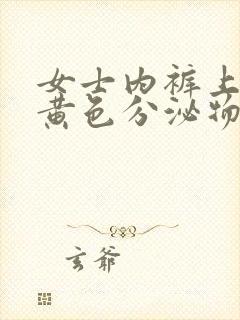 女士内裤上
黄色分泌物
玄爷